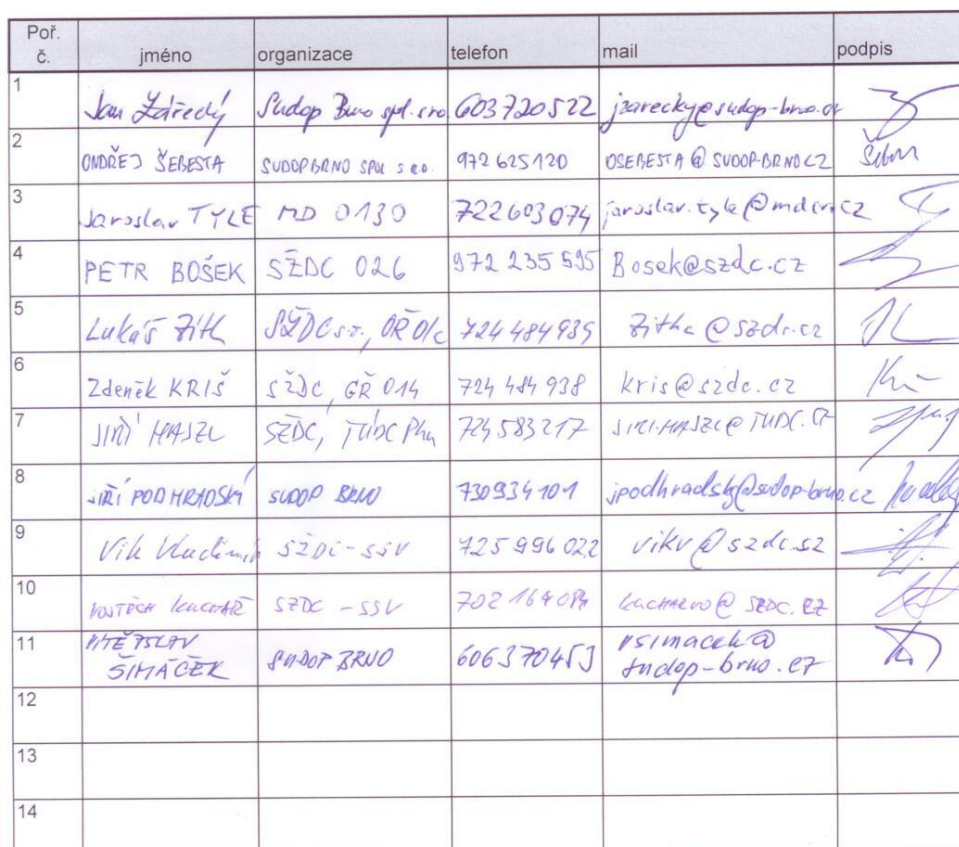 Poř. č. jméno organizace telefon mail podpis
1 Jan Zářecký Sudop Brno spol. sro 603720522 jzarecky@sudop-brno.cz
2 ONDŘEJ ŠEBESTA SUDOP BRNO SPOL S R.O. 972625120 OSEBESTA@SUDOP-BRNO.CZ
3 Jaroslav TYLE MD O130 722603074 jaroslav.tyle@mdcr.cz
4 PETR BOŠEK SŽDC O26 972 235 595 Bosek@szdc.cz
5 Lukáš SŽDC s.o., OŘ Olc 724 484 939 @szdc.cz
6 Zdeněk KRIŠ SŽDC, GŘ O14 724 484 938 kris@szdc.cz
7 JIŘÍ HAJZL SŽDC, TÚDC Pha 724583217 JIRI.HAJZL@TUDC.CZ
8 JIŘÍ PODHRADSKÝ SUDOP BRNO 730934101 jpodhradsky@sudop-brno.cz
9 Vik Vladimír SŽDC-SSV 725 996 022 vikv@szdc.sz
10 VOJTĚCH KUCHAŘ SŽDC - SSV 702 164 084 @SZDC.CZ
11 VÍTĚZSLAV ŠIMÁČEK SUDOP BRNO 606370453 vsimacek@
sudop-brno.cz
12
13
14